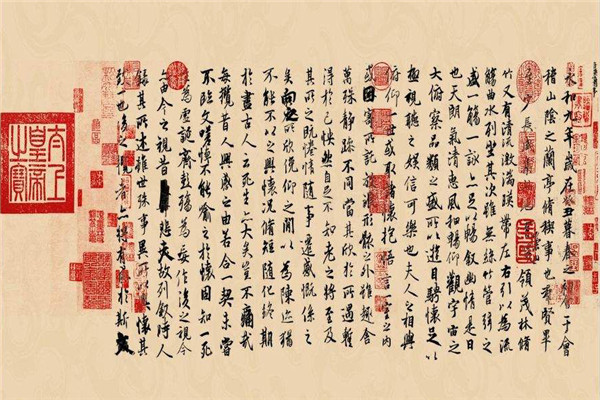 永和九年歲在癸丑暮春之初會于會
稽山陰之蘭亭脩稧事也羣賢畢
至少長咸集此地有崇山峻領茂林脩
竹又有清流激湍暎帶左右引以為流
觴曲水列坐其次雖無絲竹管弦之
盛一觴一詠亦足以暢敘幽情是日
也天朗氣清惠風和暢仰觀宇宙之
大俯察品類之盛所以遊目騁懷足以
極視聽之娛信可樂也夫人之相與
俯仰一世或取諸懷抱悟言一室之內
或因寄所託放浪形骸之外雖趣舍
萬殊靜躁不同當其欣於所遇蹔
得於己怏然自足不知老之將至及
其所之既惓情隨事遷感慨係之
矣向之所欣俛仰之閒以為陳迹猶
不能不以之興懷況脩短隨化終期
於盡古人云死生亦大矣豈不痛哉
每攬昔人興感之由若合一契未嘗
不臨文嗟悼不能喻之於懷固知一死
生為虛誕齊彭殤為妄作後之視今
亦由今之視昔悲夫故列敘時人
錄其所述雖世殊事異所以興懷其
致一也後之攬者亦將有感於斯文
太上皇帝之寶